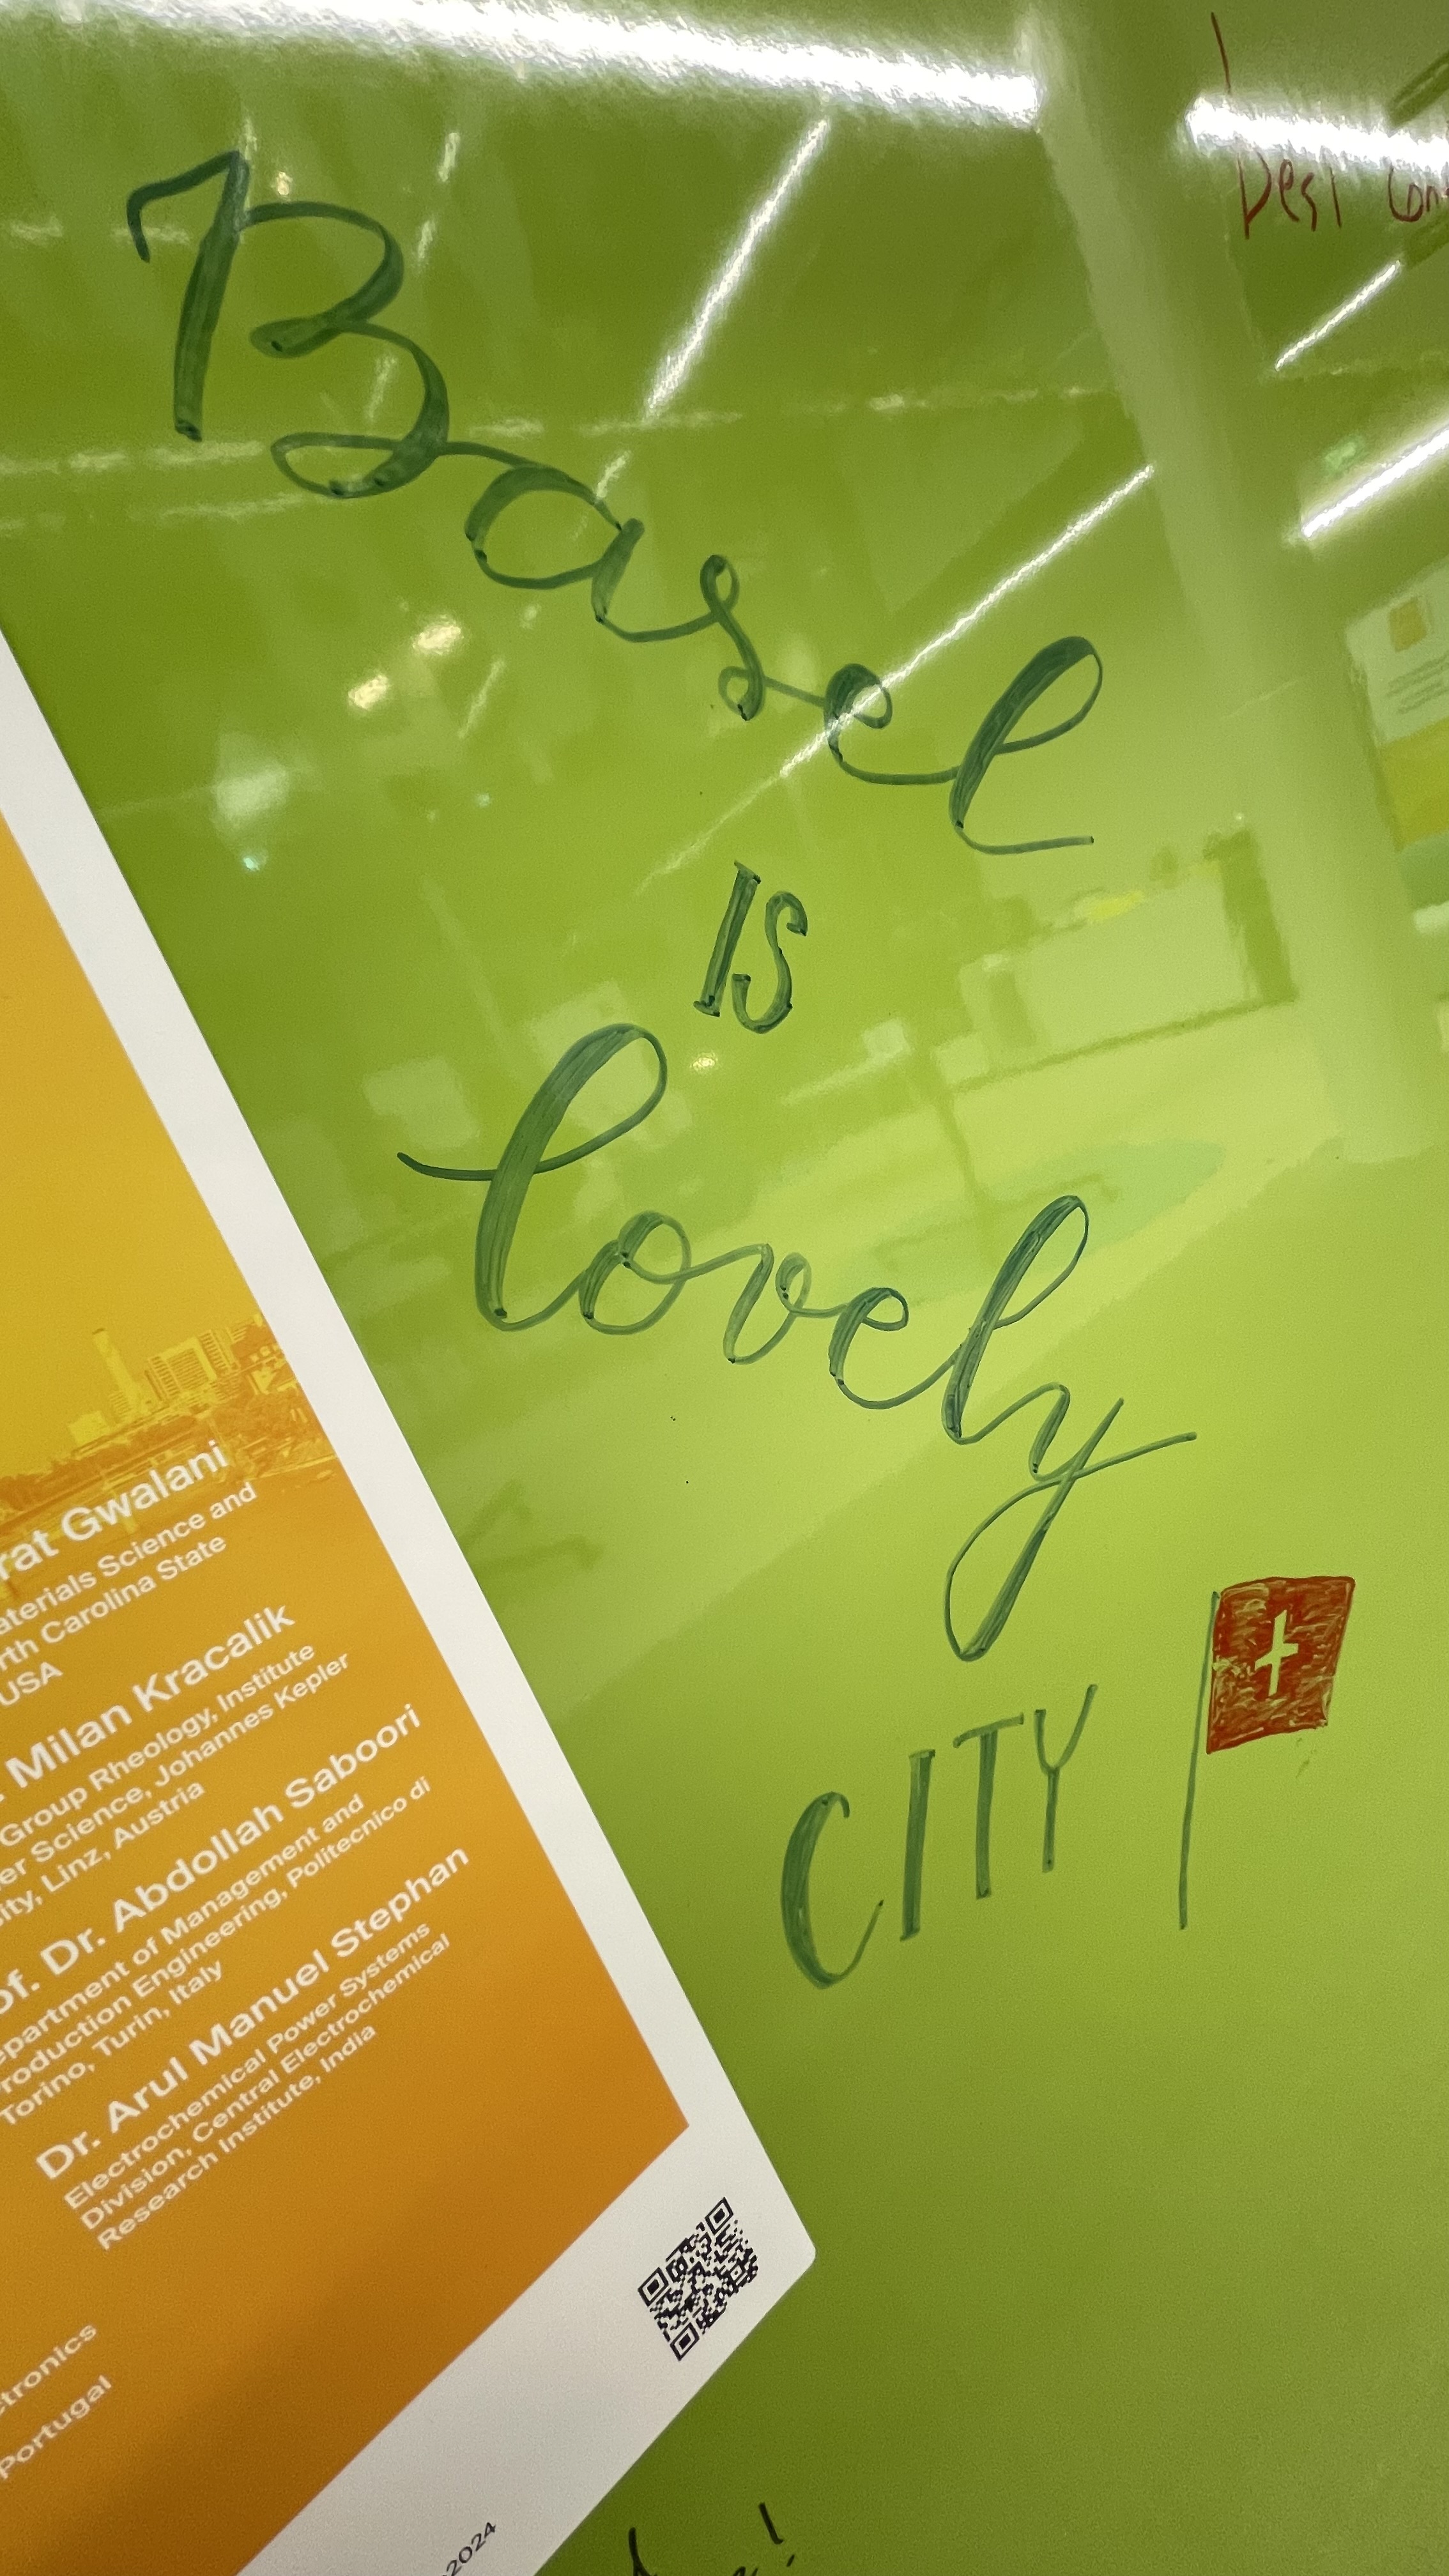 Basel
IS
lovely
CITY
rat Gwalani
aterials Science and
rth Carolina State
USA
Milan Kracalik
Group Rheology, Institute
er Science, Johannes Kepler
sity, Linz, Austria
of. Dr. Abdollah Saboori
epartment of Management and
roduction Engineering, Politecnico di
Torino, Turin, Italy
Dr. Arul Manuel Stephan
Electrochemical Power Systems
Division, Central Electrochemical
Research Institute, India
tronics
Portugal
2024